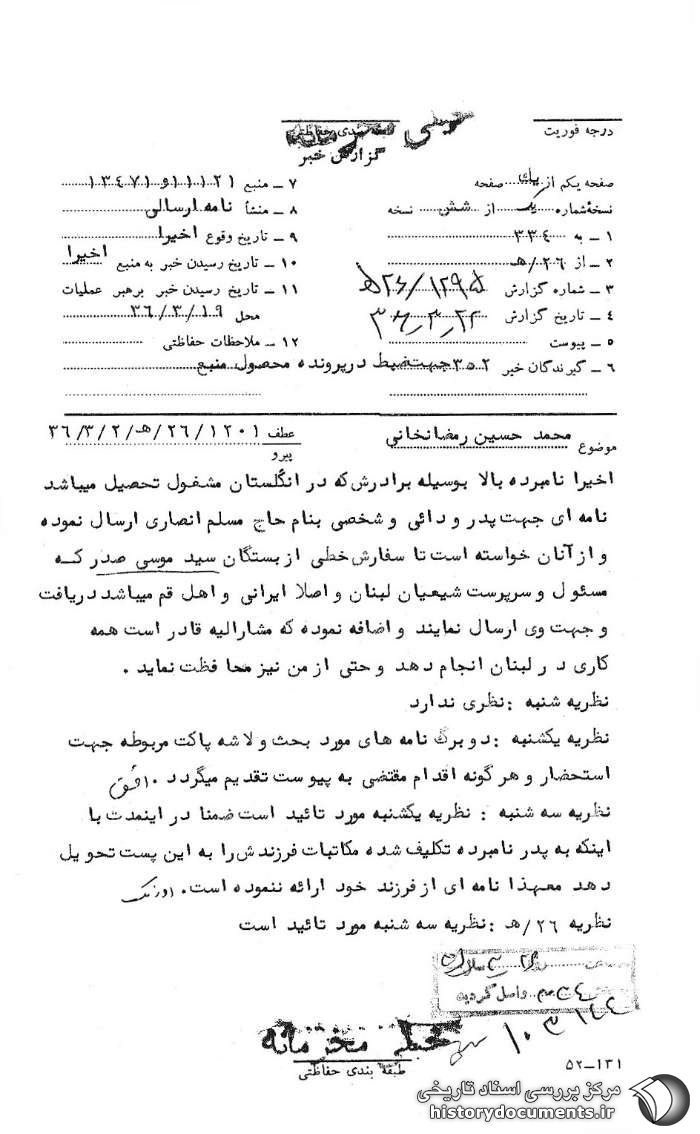 درجه فوریت
طبقه بندی حفاظتی
خیلی محرمانه
گزارش خبر
صفحه یکم از یک صفحه
نسخه شماره یک از شش نسخه
۱ – به ۳۳٤
۲ – از ۲٦/هـ
۳ – شماره گزارش ۱۲۹۵/۲۶هـ
٤ – تاریخ گزارش ۳۶-۳-۲۲
۵ – پیوست
٦ – گیرندگان خبر ۳۵۲ جهت ضبط در پرونده محصول منبع
۷ – منبع ۱۱۱۲۱ و ۱۳٤۷۱
۸ – منشأ نامه ارسالی
۹ – تاریخ وقوع اخیرا
۱۰ – تاریخ رسیدن خبر به منبع اخیرا
۱۱ – تاریخ رسیدن خبر برهبر عملیات
محل ۳٦/۳/۱۹
۱۲ – ملاحظات حفاظتی
موضوع محمد حسین رمضانخانی
عطف ۱۲۰۱/۲٦/هـ/۳٦/۳/۲
پیرو
اخیرا نامبرده بالا بوسیله برادرش که در انگلستان مشغول تحصیل میباشد
نامه ای جهت پدر و دائی و شخصی بنام حاج مسلم انصاری ارسال نموده
و از آنان خواسته است تا سفارش خطی از بستگان سید موسی صدر کــه
مسئول و سرپرست شیعیان لبنان و اصلا ایرانی و اهل قم میباشد دریافت
و جهت وی ارسال نمایند و اضافه نموده که مشارالیه قادر است همه
کاری در لبنان انجام دهد و حتی از من نیز محافظت نماید .
نظریه شنبه : نظری ندارد
نظریه یکشنبه : دو برگ نامه های مورد بحث و لاشه پاکت مربوطه جهت
استحضار و هر گونه اقدام مقتضی به پیوست تقدیم میگردد .
نظریه سه شنبه : نظریه یکشنبه مورد تائید است ضمنا در اینمدت با
اینکه به پدر نامبرده تکلیف شده مکاتبات فرزندش را به این پست تحویل
دهد معهذا نامه ای از فرزند خود ارائه ننموده است .
نظریه ۲٦/هـ : نظریه سه شنبه مورد تائید است
واصل گردید
۱۰۳۱۴۴
خیلی محرمانه
طبقه بندی حفاظتی
۵۲–۱۳۱
مرکز بررسی اسناد تاریخی
historydocuments.ir